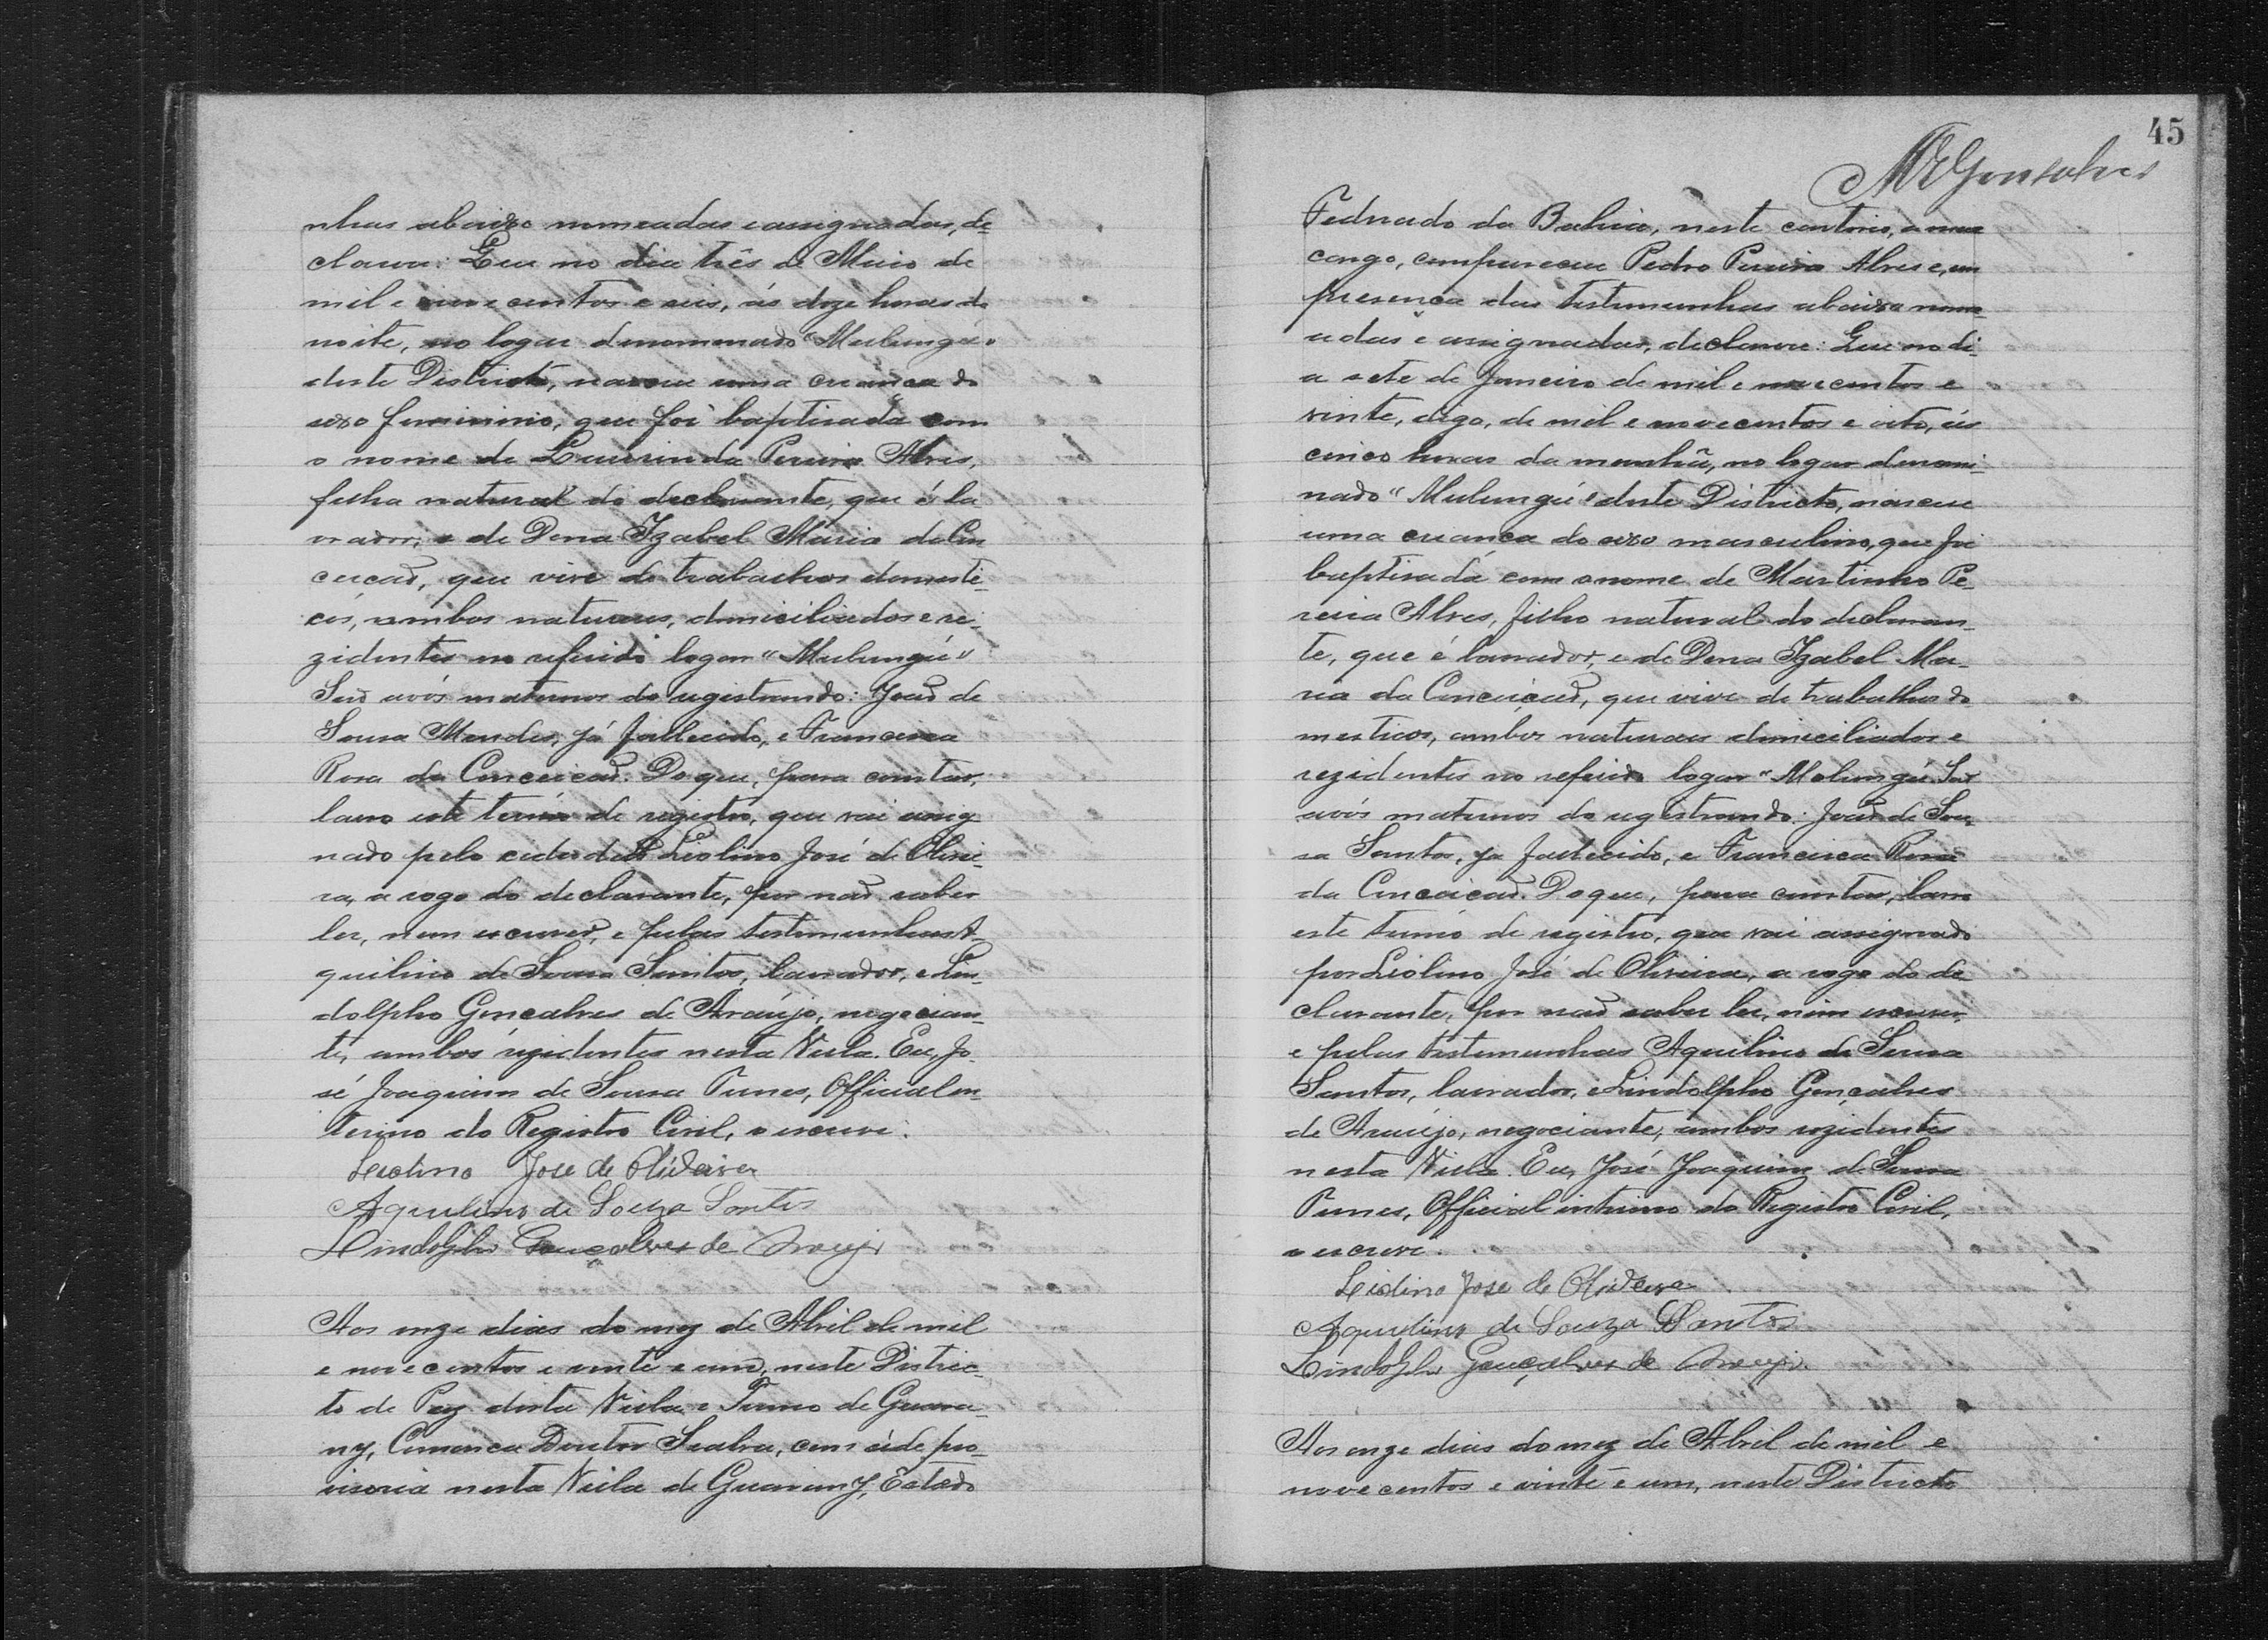 nhas abaixo nomeadas e assignadas, de-
clarou: Que no dia três de Maio de
mil e nove centos e seis, ás doze horas da
noite, no logar denominado "Mulungú"
deste Districto, nasceu uma creança do
sexo feminino, que foi baptisada com
o nome de Laurinda Pereira Alves,
filha natural do declarante, que é la
vrador, e de Dona Izabel Maria da Con
ceicaõ, que vive de trabalhos domesti-
cos, ambos naturaes, domiciliados e re-
zidentes no referido logar "Mulungú"
Saõ avós maternos do registrando: Joaõ de
Sousa Mendes, já fallecido, e Francisca
Rosa da Conceicaõ. Do que, para constar,
lavro este termo de registro, que vai assig
nado pelo cidadaõ Liolino José de Olivei-
ra, a rogo do declarante, por naõ saber
ler, nem escrever, e pelas testemunhas A-
quilino de Sousa Santos, lavrador, e Lin-
dolpho Gonçalves de Araújo, negocian-
te, ambos rezidentes nesta Villa. Eu, Jo-
sé Joaquim de Sousa Tunes, Official in-
terino do Registro Civil, o escrevi.
Leolino Jose de Oliveira
Aquilino de Souza Santos
Lindolpho Gonçalves de Araujo
Aos onze dias do mez de Abril de mil
e nove centos e vinte e um, neste Distric-
to de Paz desta Villa e Termo de Guara-
ny, Comarca Doutor Seabra, com séde pro-
visoria nesta Villa de Guarany, Estado
45
MEGonsalves
Federado da Bahia, neste cartorio, a meu
cargo, compareceu Pedro Pereira Alves e, em
presença das testemunhas abaixo nome
adas e assignadas, declarou: Que no di-
a sete de Janeiro de mil e nove centos e
vinte, digo, de mil e nove centos e oito, ás
cinco horas da manhã, no logar denomi-
nado "Mulungú" deste Districto, nasceu
uma creança do sexo masculino, que foi
baptisada com o nome de Martinho Pe-
reira Alves, filho natural do declaran-
te, que é lavrador, e de Dona Izabel Ma-
ria da Conceicaõ, que vive de trabalhos do
mesticos, ambos naturaes domiciliados e
rezidentes no referido logar "Molungú. Saõ
avós maternos do registrando: Joaõ de Sou-
sa Santos, ja fallecido, e Francisca Rosa
da Conceicaõ. Do que, para constar, lavro
este termo de registro, que vai assignado
por Liolino José de Oliveira, a rogo do de-
clarante, por naõ saber ler, nem escrever,
e pelas testemunhas Aquilino de Sousa
Santos, lavrador, e Lindolpho Gonçalves
de Araújo, negociante, ambos rezidentes
nesta Villa. Eu, José Joaquim de Sousa
Tunes, Official interino do Registro Civil,
o escrevi.
Leiolino Jose de Oliveira
Aquilino de Souza Santos
Lindolpho Gonçalves de Araujo.
Aos onze dias do mez de Abril de mil e
nove centos e vinte e um, neste Districto